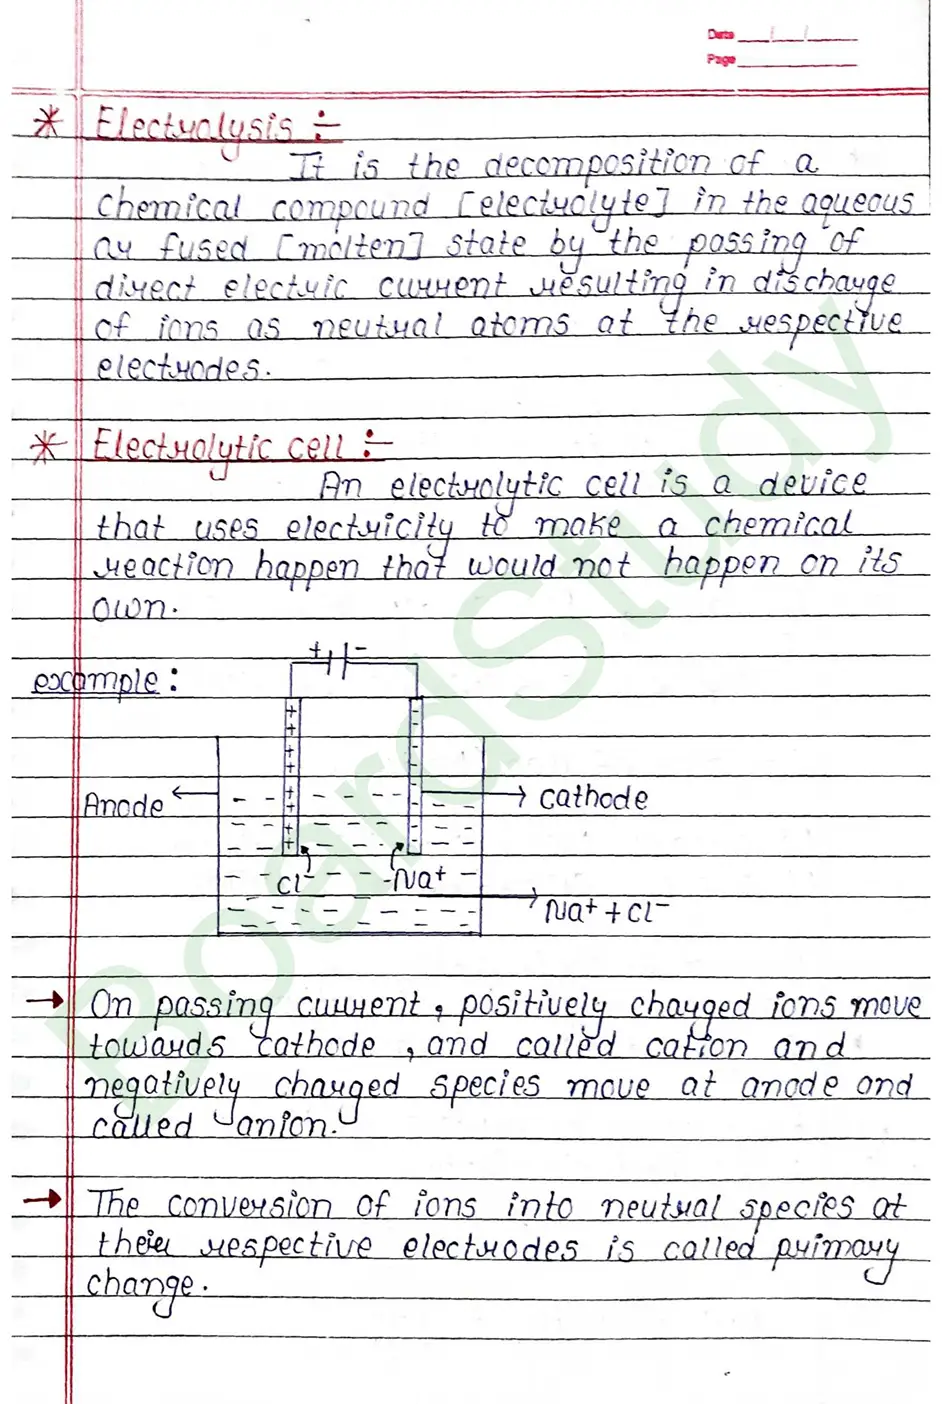 Date
Page
* Electrolysis :-
It is the decomposition of a
chemical compound [electrolyte] in the aqueous
or fused [molten] state by the passing of
direct electric current resulting in discharge
of ions as neutral atoms at the respective
electrodes.
* Electrolytic cell :-
An electrolytic cell is a device
that uses electricity to make a chemical
reaction happen that would not happen on its
own.
+ -
example :
Anode
cathode
Cl⁻ Na⁺
Na⁺ + Cl⁻
→ On passing current, positively charged ions move
towards cathode, and called cation and
negatively charged species move at anode and
called anion.
→ The conversion of ions into neutral species at
their respective electrodes is called primary
change.
BoardStudy